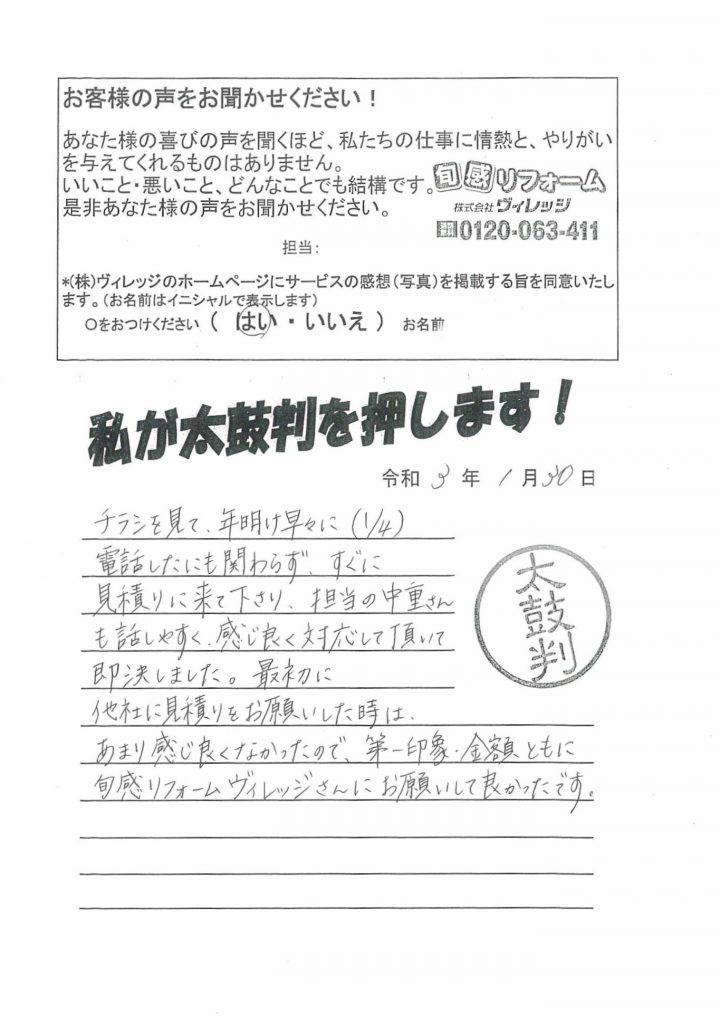 お客様の声をお聞かせください！
あなた様の喜びの声を聞くほど、私たちの仕事に情熱と、やりがい
を与えてくれるものはありません。
いいこと・悪いこと、どんなことでも結構です。
是非あなた様の声をお聞かせください。
旬感リフォーム
株式会社ヴィレッジ
0120-063-411
担当：
*(株)ヴィレッジのホームページにサービスの感想(写真)を掲載する旨を同意いたし
ます。(お名前はイニシャルで表示します)
〇をおつけください （ はい ・ いいえ ） お名前
私が太鼓判を押します！
令和 3 年 1 月 30 日
チラシを見て、年明け早々に (1/4)
電話したにも関わらず、すぐに
見積りに来て下さり、担当の中重さん
も話しやすく、感じ良く対応して頂いて
即決しました。最初に
他社に見積りをお願いした時は、
あまり感じ良くなかったので、第一印象・金額ともに
旬感リフォームヴィレッジさんにお願いして良かったです。
太鼓判